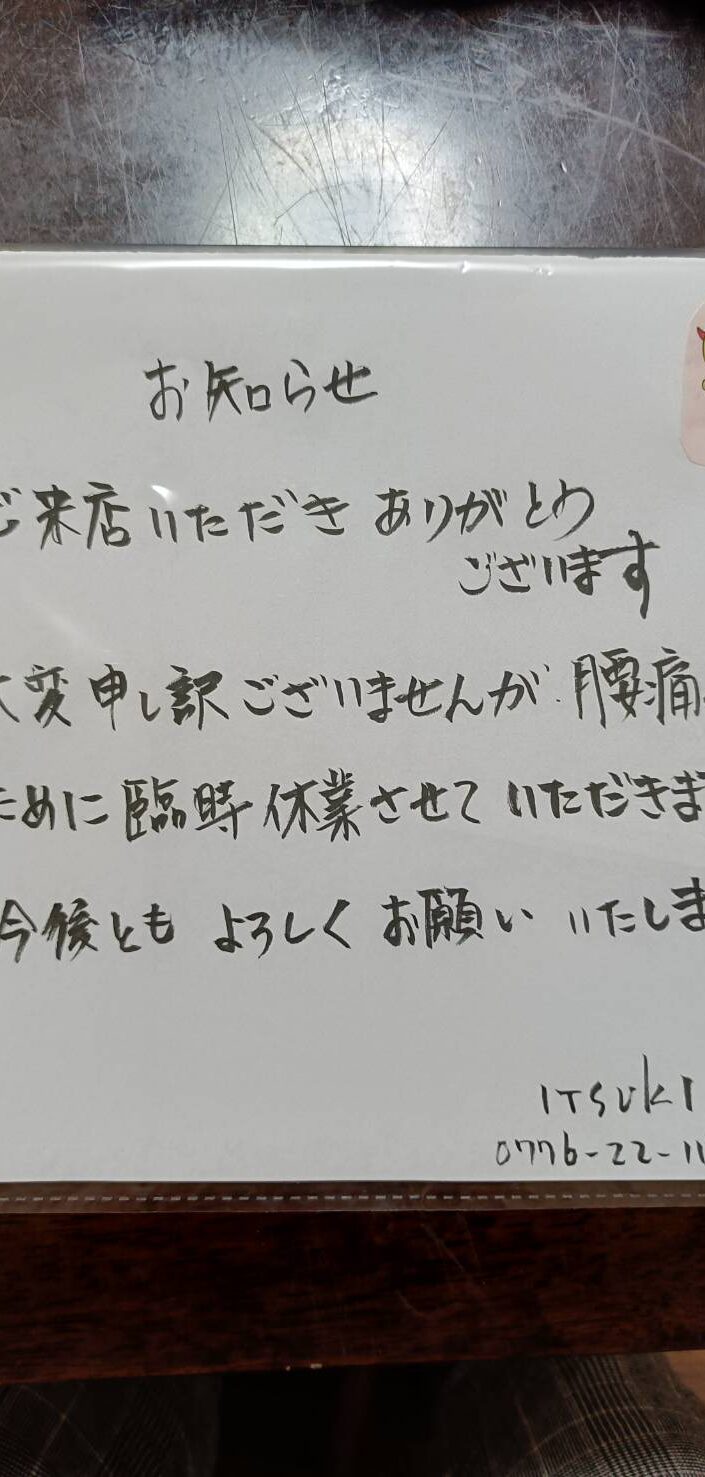 お知らせ
ご来店いただき ありがとう
ございます
大変申し訳ございませんが 腰痛
ために臨時休業させていただきま
今後とも よろしく お願い いたしま
ITSUKI
0776-22-11